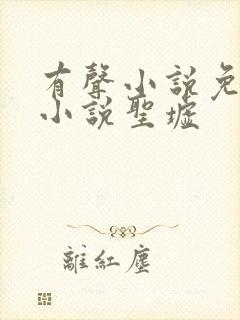 有聲小說免
小說聖墟
離紅塵